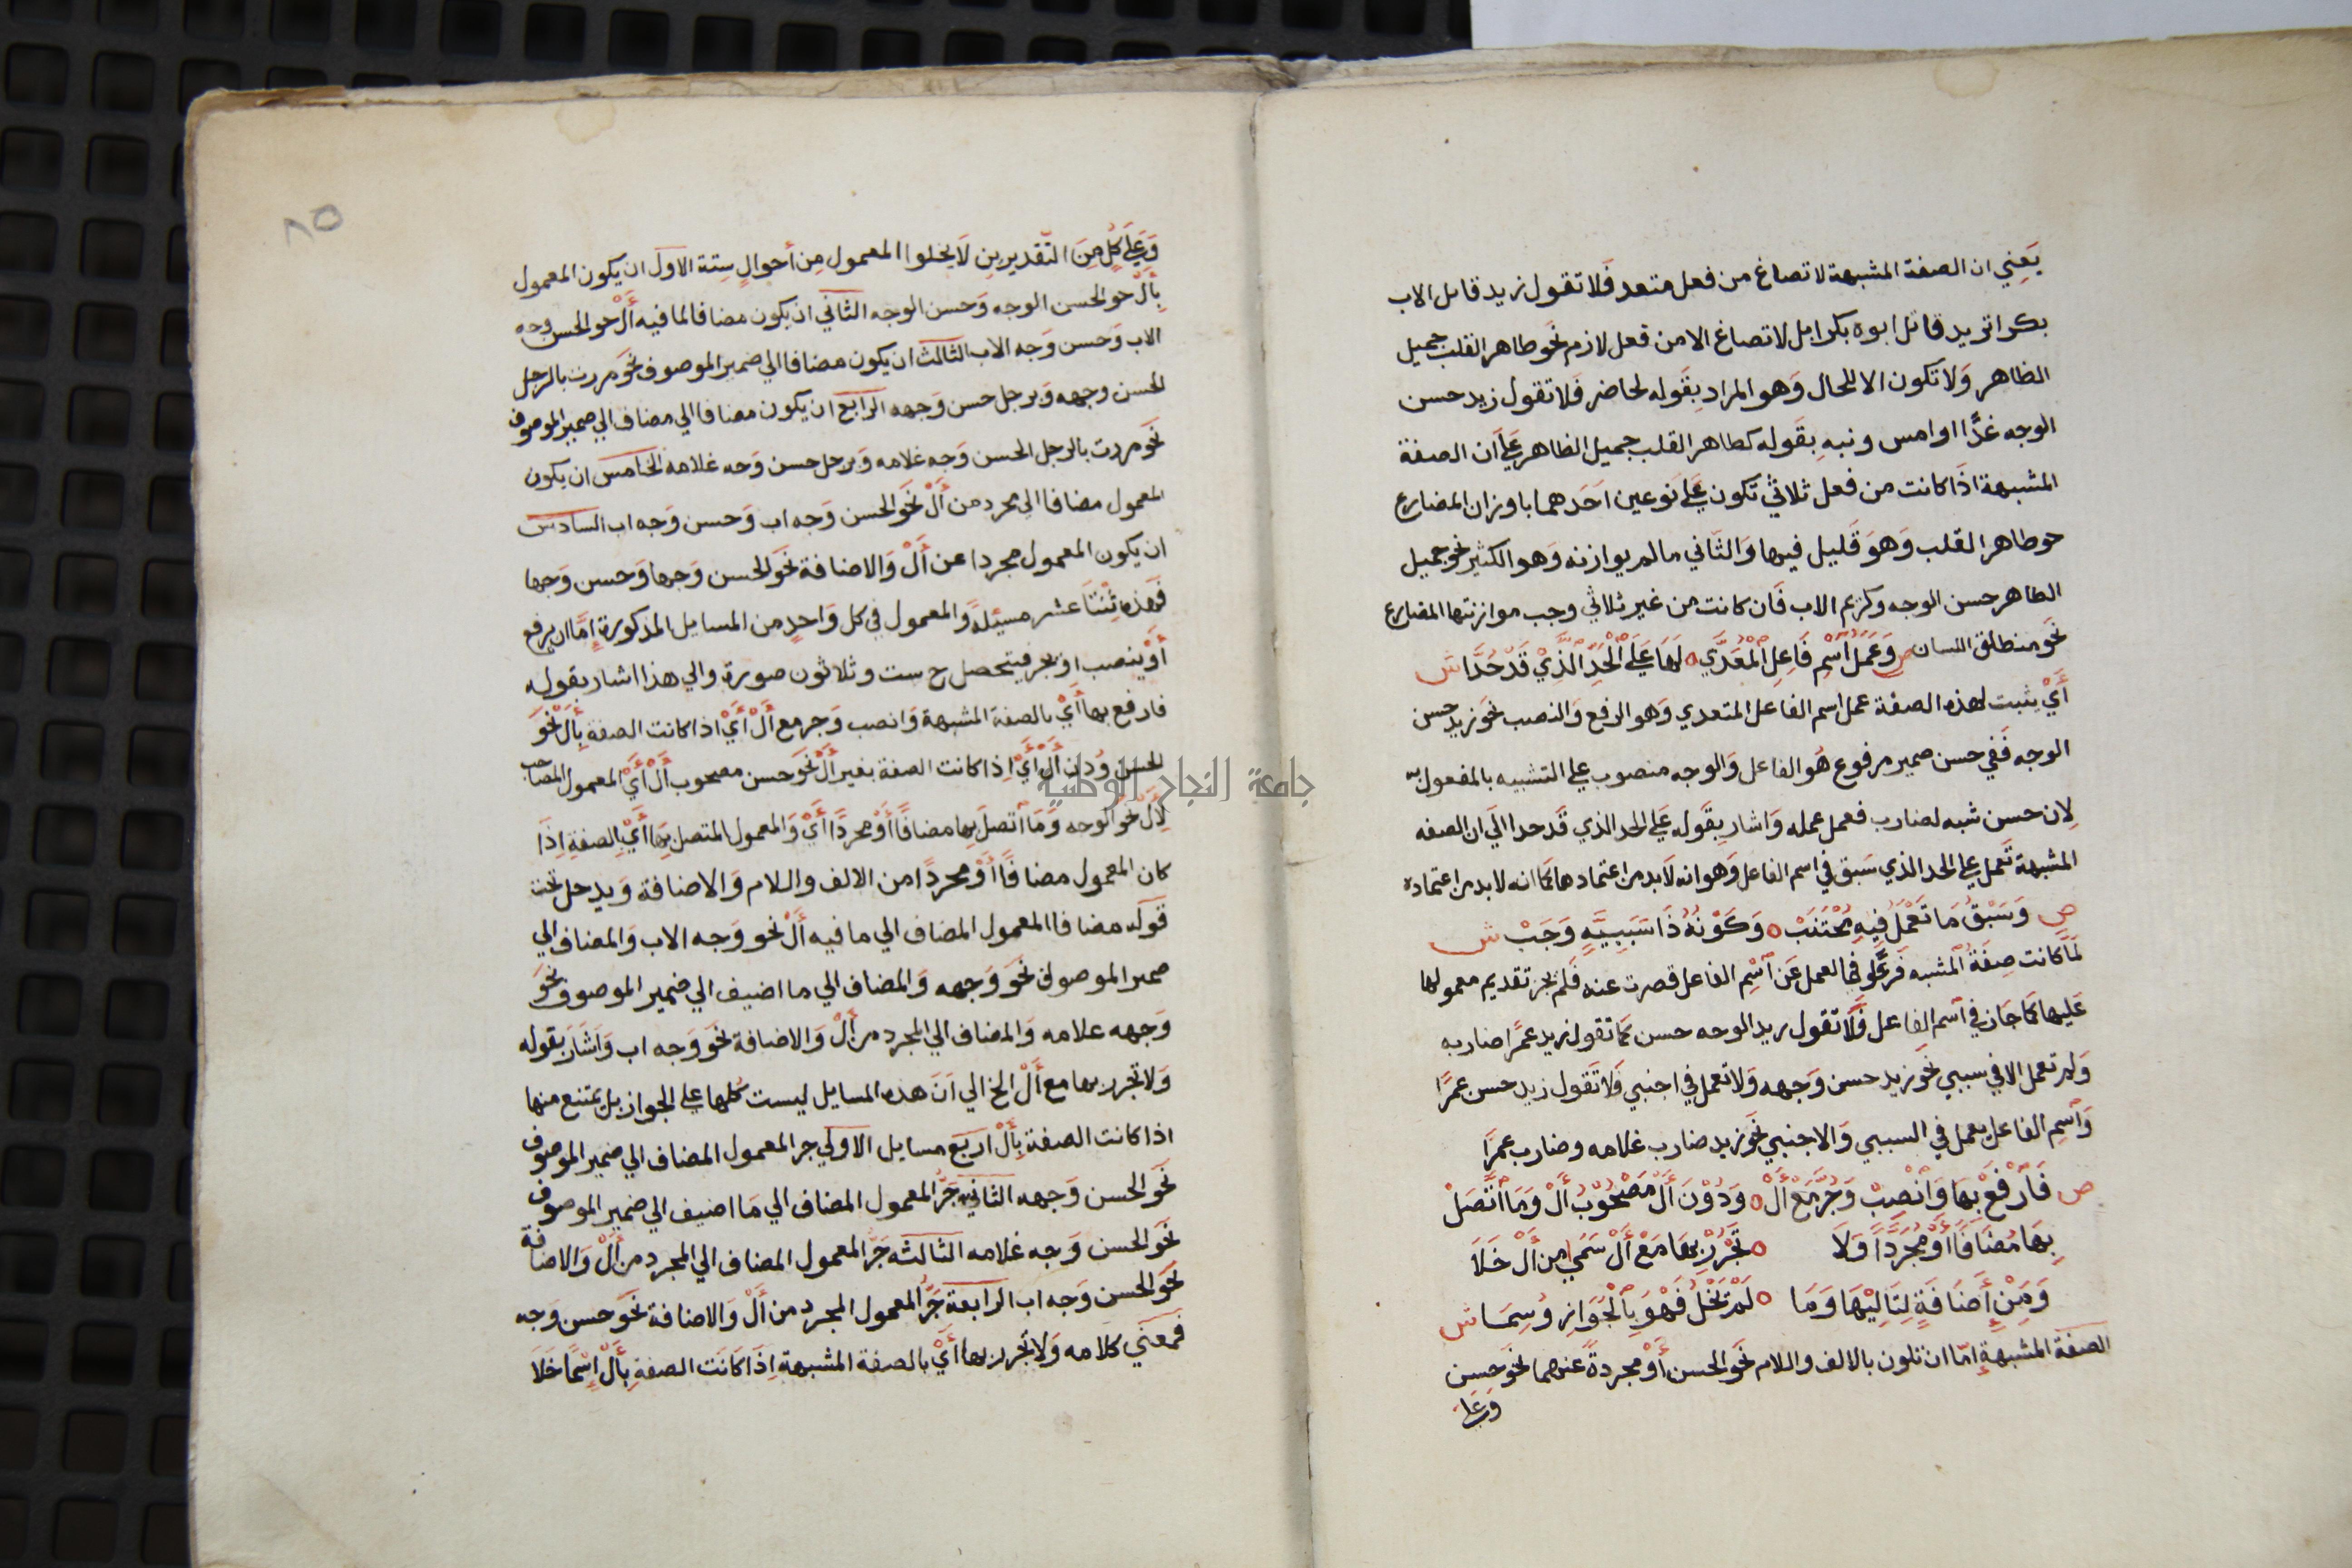 يَعني ان الصفة المشبهة لا تصاغ من فعل متعد فَلا تقول زيد قاتل الاب
بكرا تريد قاتل ابوه بكرا بل لا تصاغ الا من فعل لازم نَحو طاهر القلب جميل
الظاهر وَلا تكون الا للحال وَهو المراد بِقَوله لحاضر فَلا تقول زيد حسن
الوجه غدًا او امس ونبه بِقَوله كطاهر القلب جميل الظاهر عَلي اَن الصفة
المشبهة اذَا كانت من فعل ثلاثي تكون عَلي نَوعين اَحَدهما با وزان المضارع
حو طاهر القلب وَهوَ قَليل فيها وَالثَّاني ما لم يوازنه وَهو الكثير نَحو جميل
الطاهر حسن الوجه وكريم الاب فَان كانت من غير ثلاثي وجب موازنتها المضارع
نَحو منطلق اللسان ص وَعَمَلُ اسْمِ فَاعِلِ الْمُعَدَّي ٥ لَهَا عَلَي الْحَدِّ الَّذِيْ قَدْ حُدَّا ش
أَيْ يثبت لهذه الصفة عمل اسم الفاعل المتعدي وَهو الرفع وَالنصب نَحو زيد حسن
الوجه فَفي حسن صمير مرفوع هُو الفاعل وَالوجه منصوب علي التشبيه بالمفعول به
لِان حسن شبه لضارب فعمل عمله وَاشار بِقَوله عَلي الحد الذي قَد حدا الَي ان الصفه
المشبهة تَعمل علي الحد الذي سَبق في اسم الفاعل وَهو انه لَابد من اعتمادها كَمَا انه لابد من اعتماده
ص وَسَبْقُ مَا تَعْمَلُ فِيهِ مُجْتَنَبْ ٥ وَكَوْنُهُ ذَا سَبَبِيَّةٍ وَجَبْ ش
لَمَّا كانت صِفَةُ المشبه فَرعًا في العمل عَن اسْمِ الفاعل قصرت عنه فَلَم يجز تقديم معمولها
عَليها كَمَا جَاز في اسم الفاعل فَلَا تقول ريد الوحه حسن كَمَا تقول زيد عمرًا ضاربه
وَلم تعمل الا في سببي نَحو زيد حسن وَجهه وَلا تعمل في اجنبي فَلا تَقول زيد حسن عمرًا
وَاسْمِ الفاعل يعمل في السببي وَالاجنبي نَحو زيد ضارب غلامه وضارب عمرًا
ص فَارْفَعْ بِهَا وَانْصِبْ وَجُرَّ مَعْ أَلْ ٥ وَدُوْنَ أَلْ مَصْحُوْبَ أَلْ وَمَا اتَّصَلْ
بِهَا مُضَافًا أَوْ مُجَرَّدًا وَلَا ٥ تَجْرُرْ بِهَا مَعْ أَلْ سُمًي من أَلْ خَلَا
وَمِنْ إِضَافَةٍ لِتَالِيْهَا وَمَا ٥ لَمْ يَخْلُ فَهْوَ بِالْجَوَازِ وُسِمَا ش
الصفة المشبهةِ اِمَّا ان تلون بالالف واللام نَحَو الحسن أَوْ مجردةً عنهما نَحوَ حسِن
وَعَلي
٨٥
وَعَلَي كُلٍّ مِنَ التَّقديرينِ لَا يخلوا المعمول مِن أَحوالٍ سِتة الاول ان يكون المعمول
بِأَل حو الحسن الوجه وَحسن الوجه الثَّاني ان يكون مضافا لما فيه أَلْ حو الحسن وجه
الاب وَحسن وَجه الاب الثَّالث ان يكون مضافا الي ضمير الموصوف نَحو مررت بالرجل
الحسن وجهه وَبرجل حسن وَجهه الرَابع ان يكون مضافا الي مضاف الي ضمير الموصوف
نَحو مررت بالرجل الحسن وَجه غلامه وَبرجل حسن وَجه غلامه الخامس ان يكون
المعمول مضافا الي مجرد من أَلْ نَحَو الحسن وَجه اب وَحسن وَجه اب السادس
ان يكون المعمول مجردا عن أَلْ وَالاضافة نَحَو الحسن وَجها وَحسن وَجها
فَهذه ثِنْتَا عشر مسئلةً وَالمعمول في كل وَاحدٍ من المسايل المذكورة اِمَّا ان يرفع
أَوْ ينصب او يجر فيتحصل ح ست وثلاثون صورة والي هذا اشار بقوله
فارفع بها أَيْ بالصفة المشبهة وَانصب وَجر مع أَلْ أَيْ اذا كانت الصفة بِأَلْ نَحْوَ
الحسن وَدون أَلْ أَيْ اِذا كانت الصفة بغير أَلْ نَحو حسن مصحوب أَلْ أَيْ المعمول المصاحب
لِأَلْ نَحوَ الوجه وَمَا اتَّصَل بِها مضافًا أَوْ مجردًا أَيْ وَالمعمول المتصل بِهَا أَيْ بِالصفةِ اِذَا
كان المعمول مضافًا أَوْ مجردًا من الالف واللام وَالاضافة وَيدحل تحت
قَوله مضافا المعمول المضاف الي ما فيه أَلْ نحو وَجه الاب وَالمضاف الي
صمير الموصوف نَحَو وَجهه وَالمضاف الي ما اضيف الي ضمير الموصوف نحَو
وَجهه علامه وَالمضاف الي المجرد من أَلْ وَالاضافة نَحَو وَجه اب وَاشَار بقوله
وَلا تجرر بها مع أَلْ الخ الي اَنَ هذه المسايل ليست كُلها علي الجواز بل يمتنع منها
اذا كانت الصفة بِأَلْ اربَع مسايل الاولي جر المعمول المضاف الي ضمير الموصوف
نَحَو الحسن وَجهه الثانيه جَرُّ المعمول المضاف الي مَا اضيف الي ضمير الموصوف
نَحَو الحسن وَجه غلامه الثالثه جَرّ المعمول المضاف الي المجرد من أَلْ وَالاضافة
نَحَو الحسن وَجه اب الرابعة جَرُّ المعمول المجرد من أَلْ وَالاضافة نَحَو حسن وَجه
فَمعَني كلامه وَلا تَجرر بها أَيْ بالصفة المشبهة اِذَا كَانَت الصفةِ بِأَلْ اِسْمًا خَلَا
جامعة النجاح الوطنية